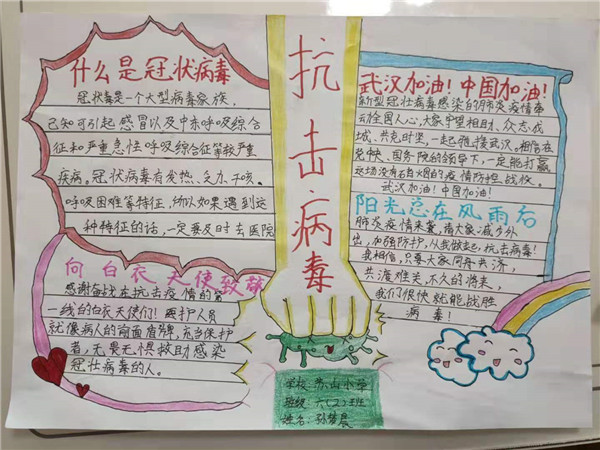 什么是冠状病毒
冠状毒是一个大型病毒家族，
己知可引起感冒以及中东呼吸综合
征和严重急性呼吸综合征等较严重
疾病。冠状病毒有发热、乏力、干咳、
呼吸困难等特征，所以如果遇到这
种特征的话，一定要及时去医院
向白衣天使致敬
感谢奋战在抗击疫情的第
一线的白衣天使们！医护人员
就像病人的前面盾牌，充当保护
者，无畏无惧救助感染
冠壮病毒的人。
抗击病毒
学校：苏山小学
班级：六(2)班
姓名：孙梦晨
武汉加油！中国加油！
新型冠壮病毒感染的肺炎疫情牵
动全国人心，大家守望相助、众志成
城、共克时坚，一起死撑武汉。相信在
党中央、国务院的领导下，一定能打赢
这场没有硝烟的疫情防控战役。
武汉加油！中国加油！
阳光总在风雨后
肺炎疫情来袭，请大家减少外
出，加强防护，从我做起，抗击病毒！
我相信，只要大家同舟共济，
共渡难关，不久的将来，
我们很快就能战胜
病毒！